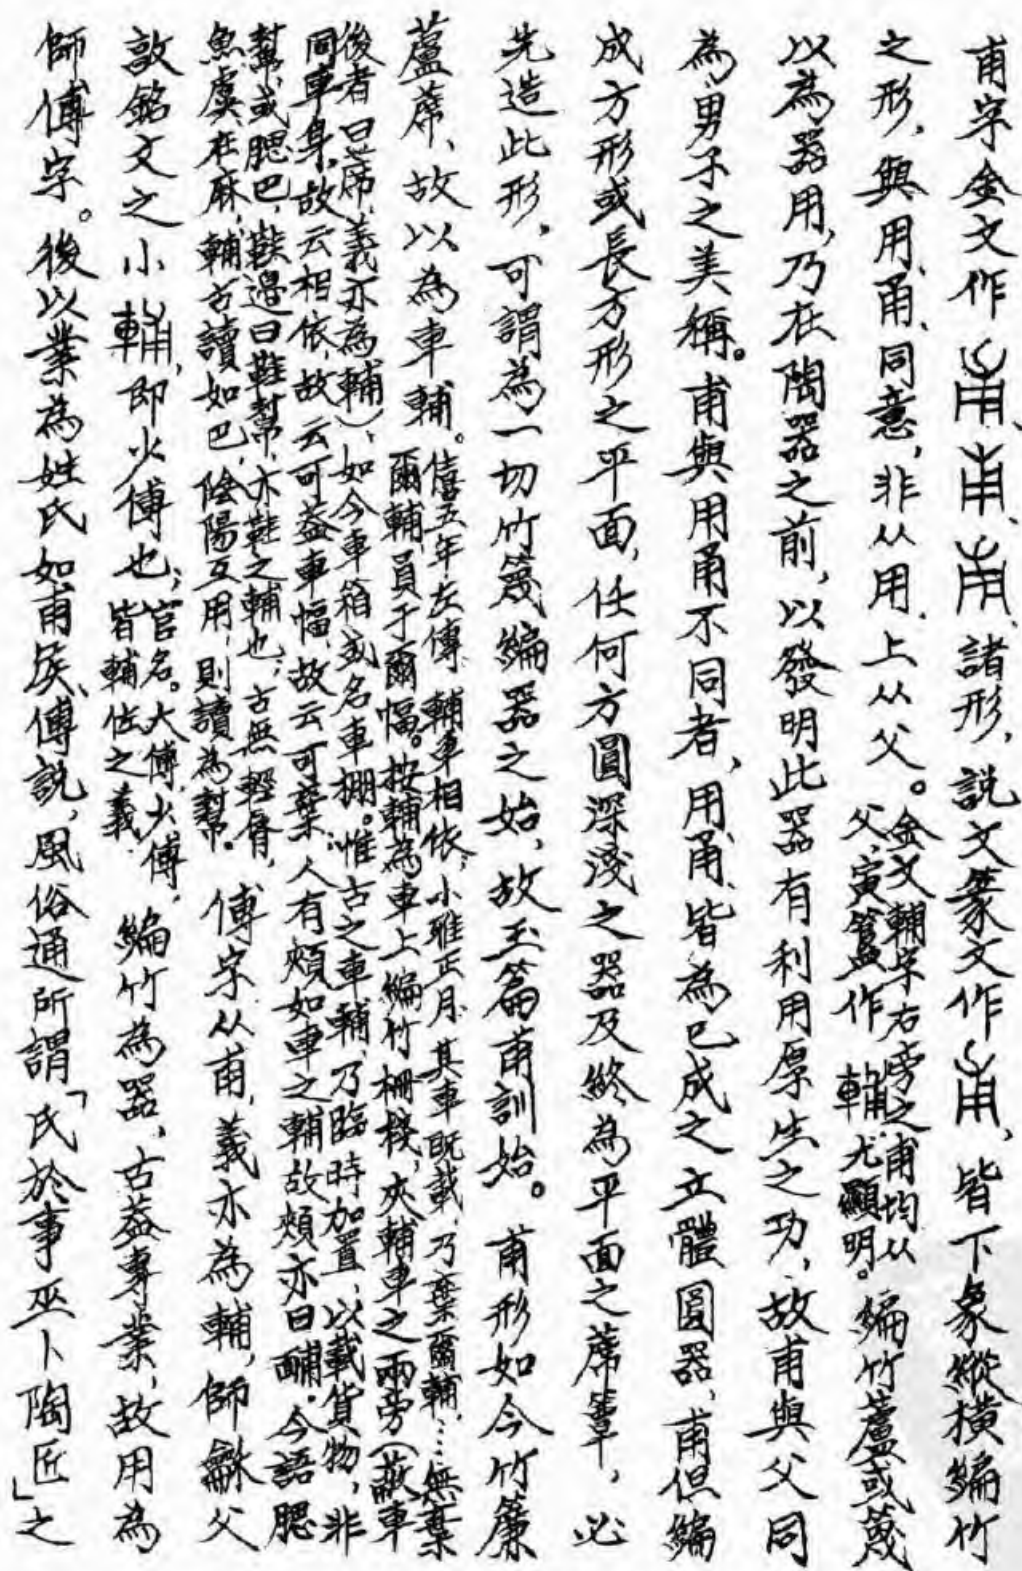 甫字金文作、諸形,說文篆文作,皆下象縱橫編竹
之形,與用、甬、同意,非从用、上从父。
金文輔字右旁之甫均从
父,寅簋作輔尤顯明。
編竹蘆或篾
以為器用,乃在陶器之前,以發明此器有利用厚生之功,故甫與父同
為男子之美稱。甫與用甬不同者,用甬、皆為已成之立體圓器,甫但編
成方形或長方形之平面,任何方圓深淺之器及終為平面之蓆簟,必
先造此形,可謂為一切竹篾編器之始,故玉篇甫訓始。甫形如今竹簾
蘆蓆,故以為車輔。
僖五年左傳 輔車相依,小雅正月 其車既載,乃棄爾輔……無棄
爾輔,員于爾幅。按輔為車上編竹柵棧,夾輔車之兩旁(蔽車
後者曰蓆,義亦為輔),如今車箱或名車棚。惟古之車輔,乃臨時加置,以載貨物,非
同車身,故云相依,故云可益車幅,故云可棄。人有頰如車之輔故頰亦曰䩉。今語腮
幫,或腮巴,鞋邊曰鞋幫,亦鞋之輔也,古無輕脣,
魚虞在麻,輔古讀如巴,陰陽互用,則讀為幫。
傅字从甫,義亦為輔,師龢父
敦銘文之小輔,即少傅也;
官名。大傅,少傅,
皆輔佐之義。
編竹為器,古蓋專業,故用為
師傅字。後以業為姓氏如甫侯、傅說,風俗通所謂「氏於事巫卜陶匠」之